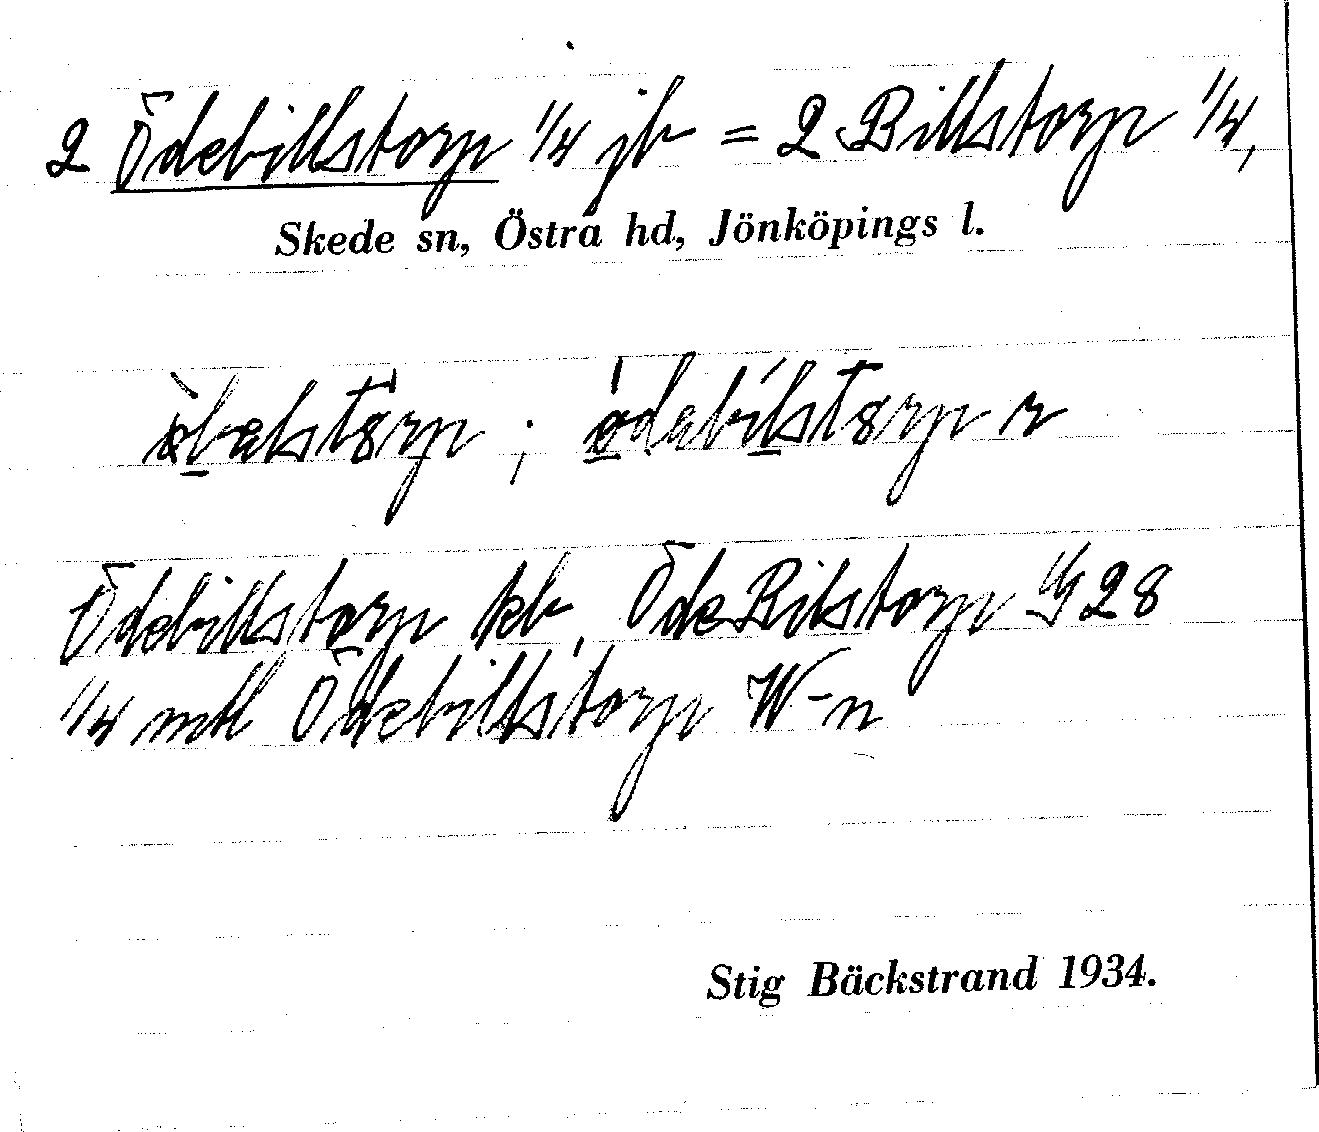 2 Ödebillstorp 1/4 jb = 2 Billstorp 1/4,
Skede sn, Östra hd, Jönköpings l.
Ödebillstorp kb, Öde Bilstorp 28
1/4 mtl Ödebillstorp W-n
Stig Bäckstrand 1934.